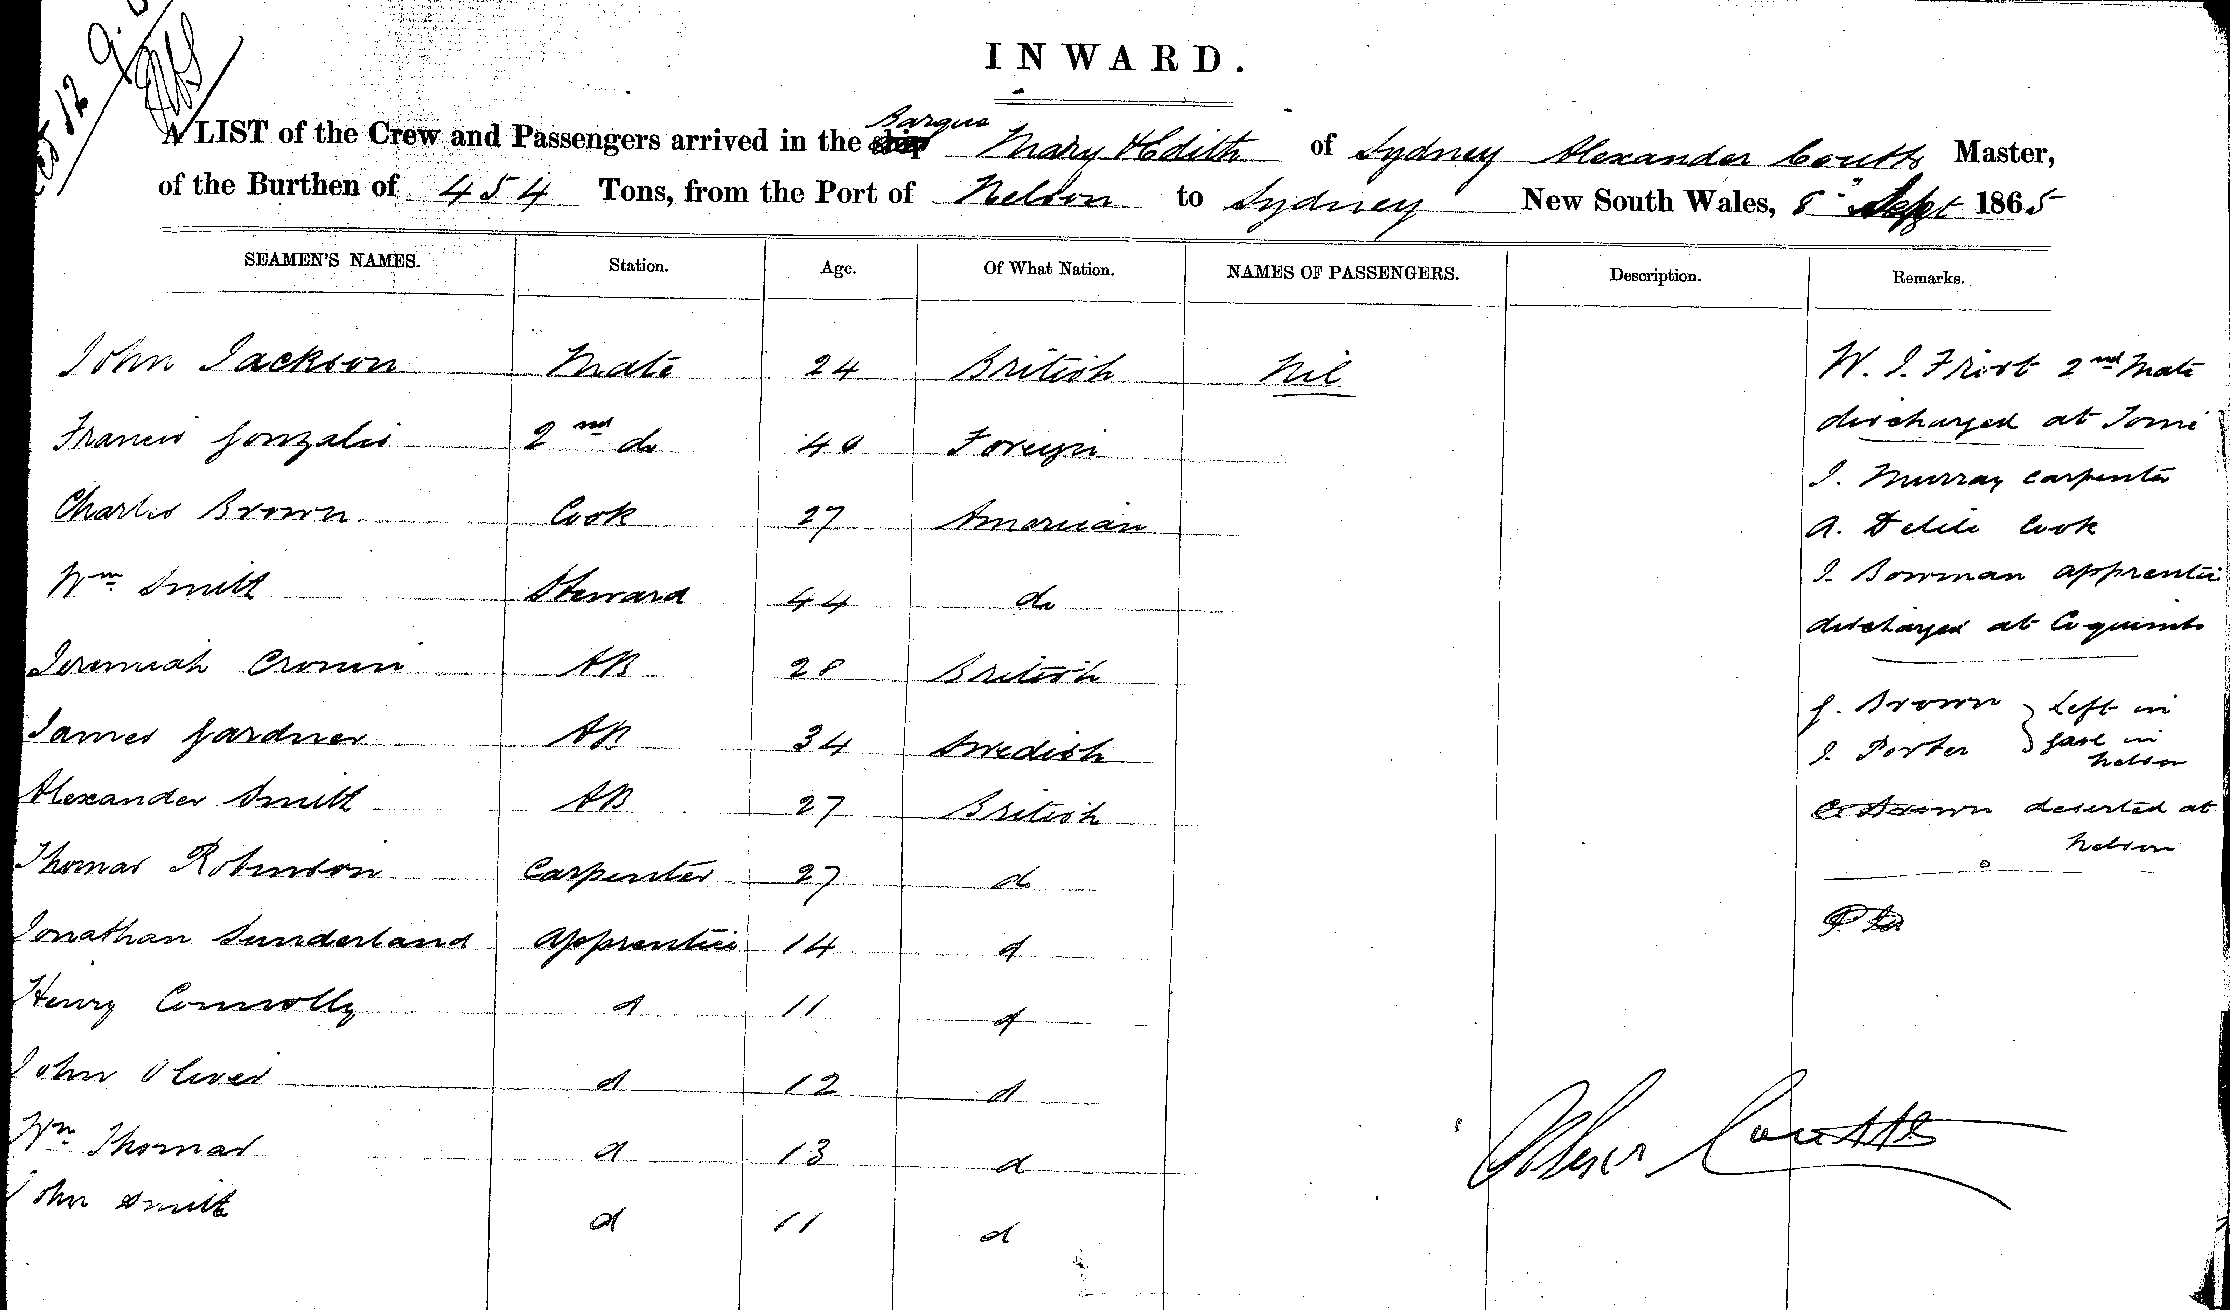 12
INWARD.
A LIST of the Crew and Passengers arrived in the ship Barque Mary & Edith of Sydney Alexander Coutts Master,
of the Burthen of 454 Tons, from the Port of Nelson to Sydney New South Wales, 8" Sept 1865
SEAMEN'S NAMES. Station. Age. Of What Nation. NAMES OF PASSENGERS. Description. Remarks.
John Jackson Mate 24 British Nil W. J. Frost 2nd Mate
discharged at Tome
Francis Gonzalis 2nd do 40 Foreign
J. Murray Carpenter
Charles Brown Cook 27 American A. Delile Cook
Wm Smith Steward 44 do J. Bowman apprentice
discharged at Coquimbo
Jeremiah Cronin AB 28 British
James Gardner AB 34 Swedish G. Brown } Left in
J. Porter } Gaol in
Nelson
Alexander Smith AB 27 British C. Brown deserted at
Nelson
Thomas Robinson Carpenter 27 do
Jonathan Sunderland apprentice 14 d
Henry Connolly d 11 d
John Oliver d 12 d
Wm Thomas d 13 d
Alexr Coutts
John Smith d 11 d